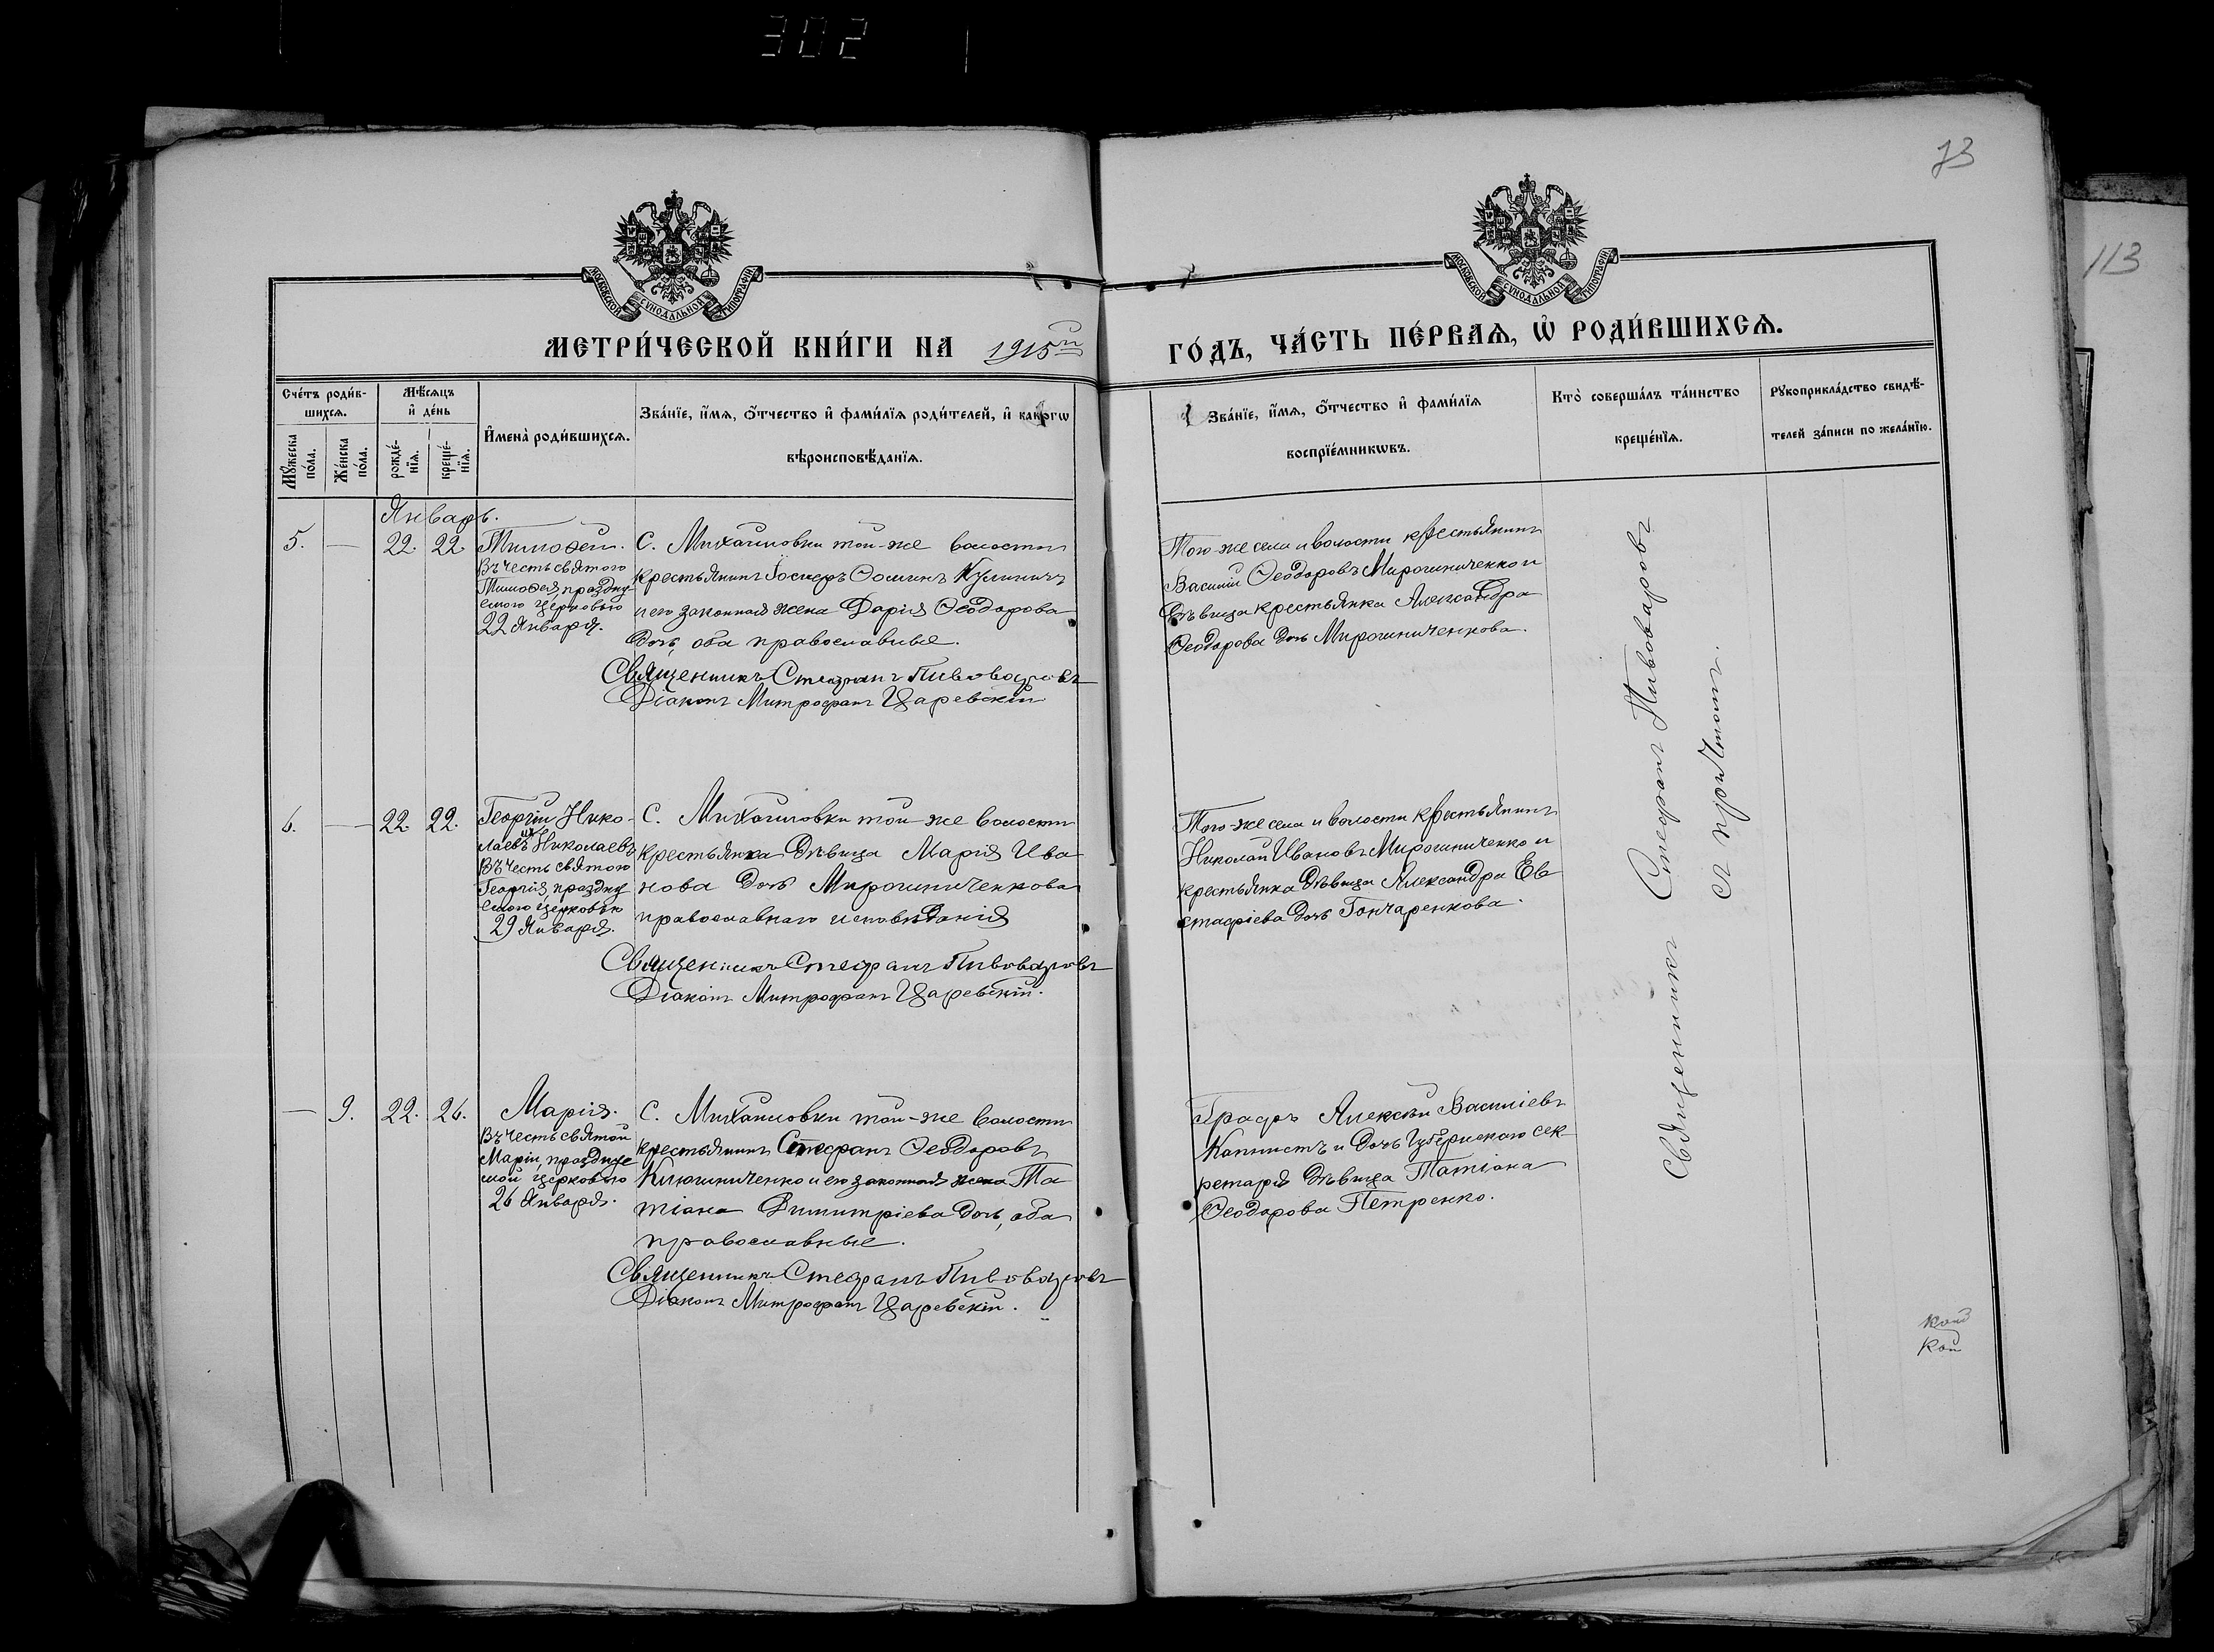 302
73
113
МОСКОВСКОЙ СУНОДАЛЬНОЙ ТИПОГРАФІИ
МОСКОВСКОЙ СУНОДАЛЬНОЙ ТИПОГРАФІИ
МЕТРИ́ЧЕСКОЙ КНИ́ГИ НА 1915й
ГО́ДЪ, ЧА́СТЬ ПЕ́РВАѦ, Ѡ҆ РОДИ́ВШИХСѦ.
Сче́тъ роди́в-
шихсѧ.
Мꙋ́жеска
по́ла.
Же́нска
по́ла.
Мѣ́сѧцъ
и҆ де́нь
рожде́-
нїѧ.
креще́-
нїѧ.
И҆мена̀ роди́вшихсѧ.
Зва́нїе, и҆́мѧ, ѻ҆́тчество и҆ фами́лїѧ роди́телей, и҆ какогѡ
вѣроисповѣ́данїѧ.
Зва́нїе, и҆́мѧ, ѻ҆́тчество и҆ фами́лїѧ
воспрїе́мникѡвъ.
Кто̀ соверша́лъ та́инство
креще́нїѧ.
Рꙋкоприкла́дство свидѣ́-
телей за́писи по жела́нїю.
Январь.
5. — 22. 22.
Тимофей.
Въ честь святого
Тимофея, праздну-
емого церковью
22 Января.
С. Михайловки той-же волости
крестьянинъ Іосифъ Ѳоминъ Кулиничъ
и его законная жена Дарія Ѳеодорова
дочь, оба православные.
Священникъ Стефанъ Пивоваровъ
Діаконъ Митрофанъ Царевскій
Того-же села и волости крестьянинъ
Василій Ѳеодоровъ Мирошниченко и
дѣвица крестьянка Александра
Ѳеодорова дочь Мирошниченкова.
6. — 22. 22.
Георгій Нико-
лаевъ Николаевъ
Въ честь святого
Георгія праздну
емого церковью
29 Января.
С. Михайловки той-же волости
крестьянка дѣвица Марія Ива
нова дочь Мирошниченкова
православнаго исповѣданія
Священникъ Стефанъ Пивоваровъ
Діаконъ Митрофанъ Царевскій.
Того-же села и волости крестьянинъ
Николай Ивановъ Мирошниченко и
крестьянка дѣвица Александра Ев
стафіева дочь Гончаренкова.
— 9. 22. 26.
Марія.
Въ честь святой
Маріи, праздуе
мой церковью
26 Января.
С. Михайловки той-же волости
крестьянинъ Стефанъ Ѳеодоровъ
Клюшниченко и его законная жена Та
тіана Димитріева дочь, оба
православные.
Священникъ Стефанъ Пивоваровъ
Діаконъ Митрофанъ Царевскій.
Графъ Алексѣй Василіевъ
Капнистъ и дочь Губернскаго сек-
ретаря дѣвица Татіана
Ѳеодорова Петренко.
Священникъ Стефанъ Пивоваровъ
съ причтомъ.